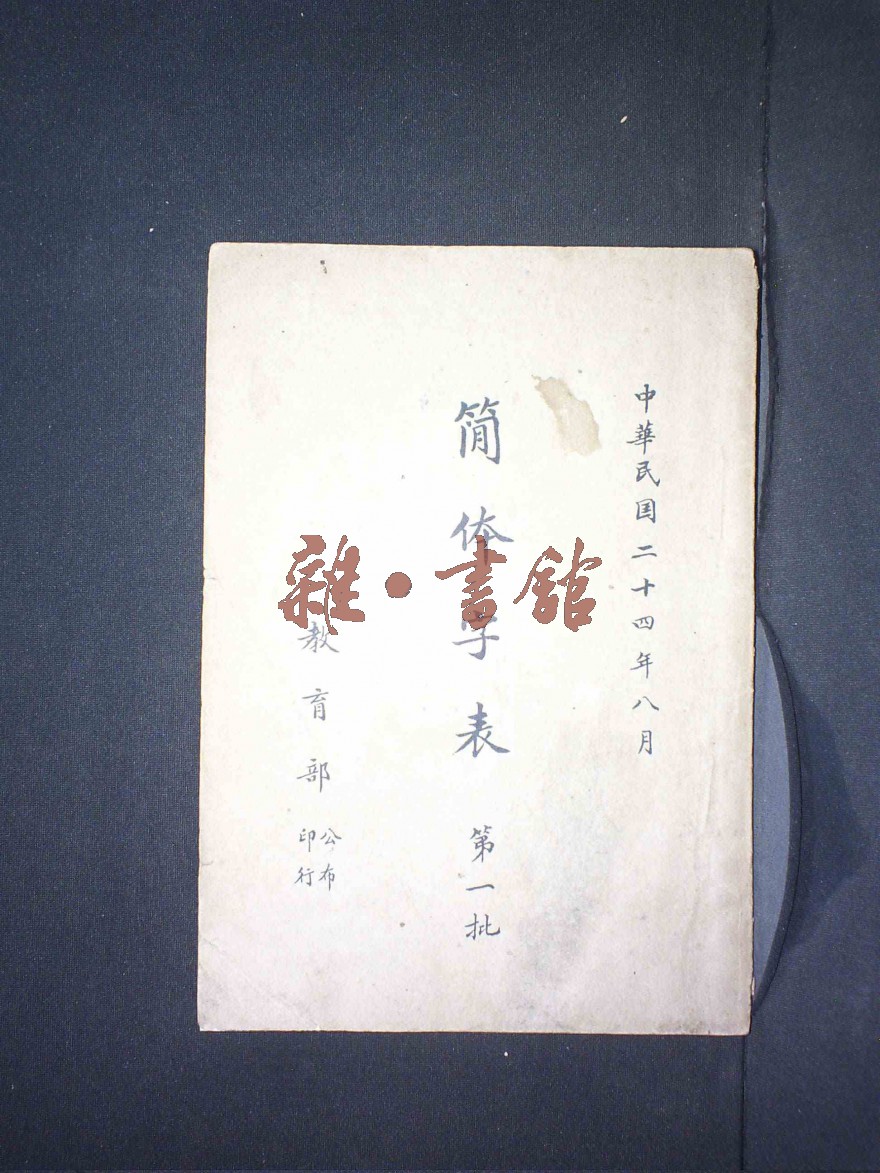 中華民囯二十四年八月
简体字表 第一批
教育部 公布
印行
雜·書館